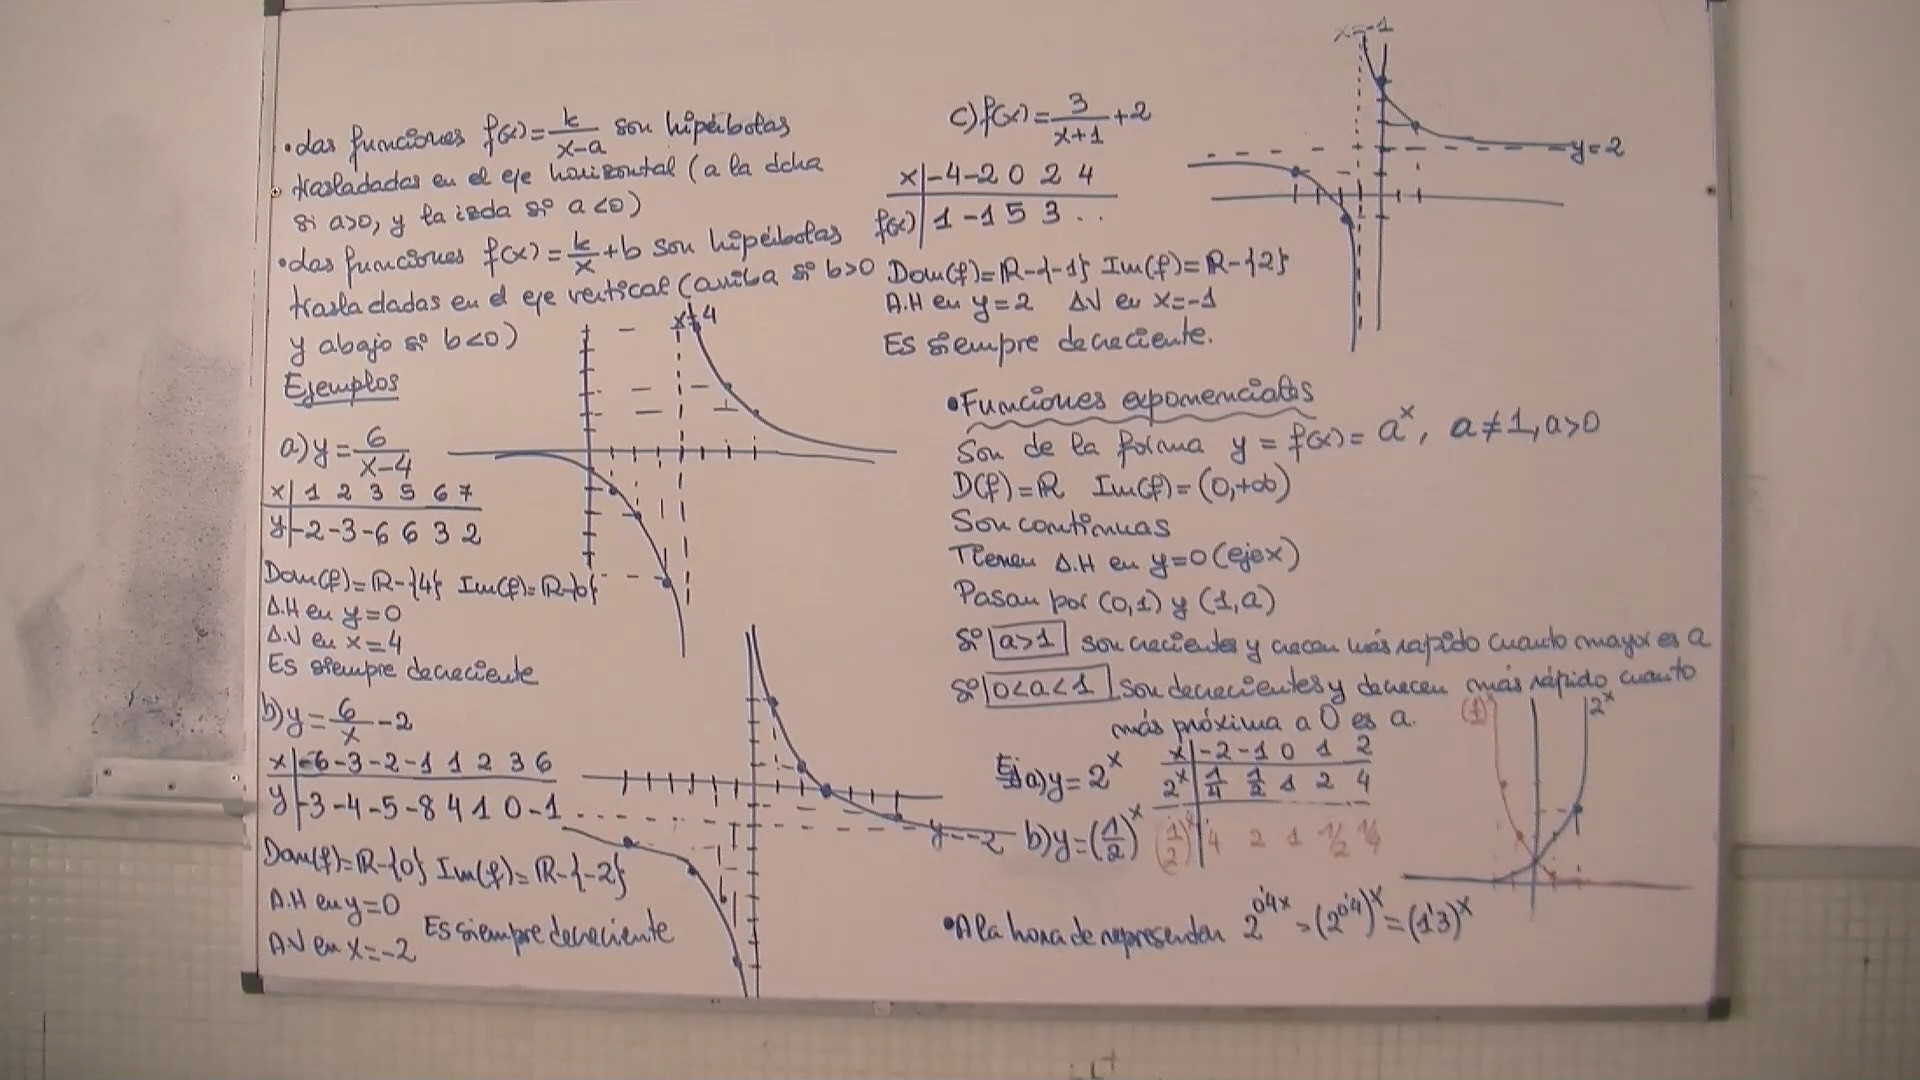 • Las funciones f(x)=k/(x-a) son hipérbolas
trasladadas en el eje horizontal (a la dcha
si a>0, y la izda si a<0)
• Las funciones f(x)=k/x+b son hipérbolas
trasladadas en el eje vertical (arriba si b>0
y abajo si b<0)
Ejemplos
a) y=6/(x-4)
x | 1 2 3 5 6 7
y | -2 -3 -6 6 3 2
Dom(f)=R-{4} Im(f)=R-{0}
A.H en y=0
A.V en x=4
Es siempre decreciente
x=4
b) y=6/x-2
x | -6 -3 -2 -1 1 2 3 6
y | -3 -4 -5 -8 4 1 0 -1
Dom(f)=R-{0} Im(f)=R-{-2}
A.H en y=0
A.V en x=-2
Es siempre decreciente
y=-2
c) f(x)=3/(x+1)+2
x | -4 -2 0 2 4
f(x) | 1 -1 5 3 ..
Dom(f)=R-{-1} Im(f)=R-{2}
A.H en y=2 A.V en x=-1
Es siempre decreciente.
x=-1
y=2
• Funciones exponenciales
Son de la forma y=f(x)=a^x, a≠1, a>0
D(f)=R Im(f)=(0,+∞)
Son continuas
Tienen A.H en y=0 (eje x)
Pasan por (0,1) y (1,a)
Si a>1 son crecientes y crecen más rapido cuanto mayor es a
Si 0<a<1 son decrecientes y decrecen más rápido cuanto
más próxima a 0 es a.
Ej a) y=2^x
x | -2 -1 0 1 2
2^x | 1/4 1/2 1 2 4
b) y=(1/2)^x
(1/2)^x | 4 2 1 1/2 1/4
2^x
• A la hora de representar 2^0'4x = (2^0'4)^x = (1'3)^x